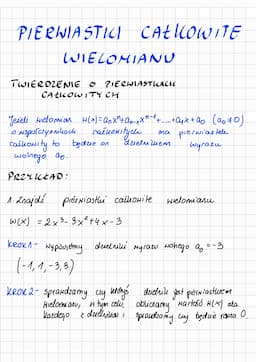 PIERWIASTKI CAŁKOWITE
WIELOMIANU
TWIERDZENIE O PIERWIASTKACH
CAŁKOWITYCH
Jeżeli wielomian W(x)=aₙxⁿ+aₙ₋₁xⁿ⁻¹+...+a₁x+a₀ (a₀≠0)
o współczynnikach całkowitych ma pierwiastek
całkowity to będzie on dzielnikiem wyrazu
wolnego a₀.
PRZYKŁAD:
1. Znajdź pierwiastki całkowite wielomianu
W(x) = 2x³-3x²+4x-3
KROK 1- wypiszmy dzielniki wyrazu wolnego a₀=-3
(-1, 1, -3, 3)
KROK 2- sprawdzamy czy któryś dzielnik jest pierwiastkiem
wielomianu, w tym celu obliczamy wartość W(x) dla
każdego z dzielników i sprawdzamy czy będzie równa 0